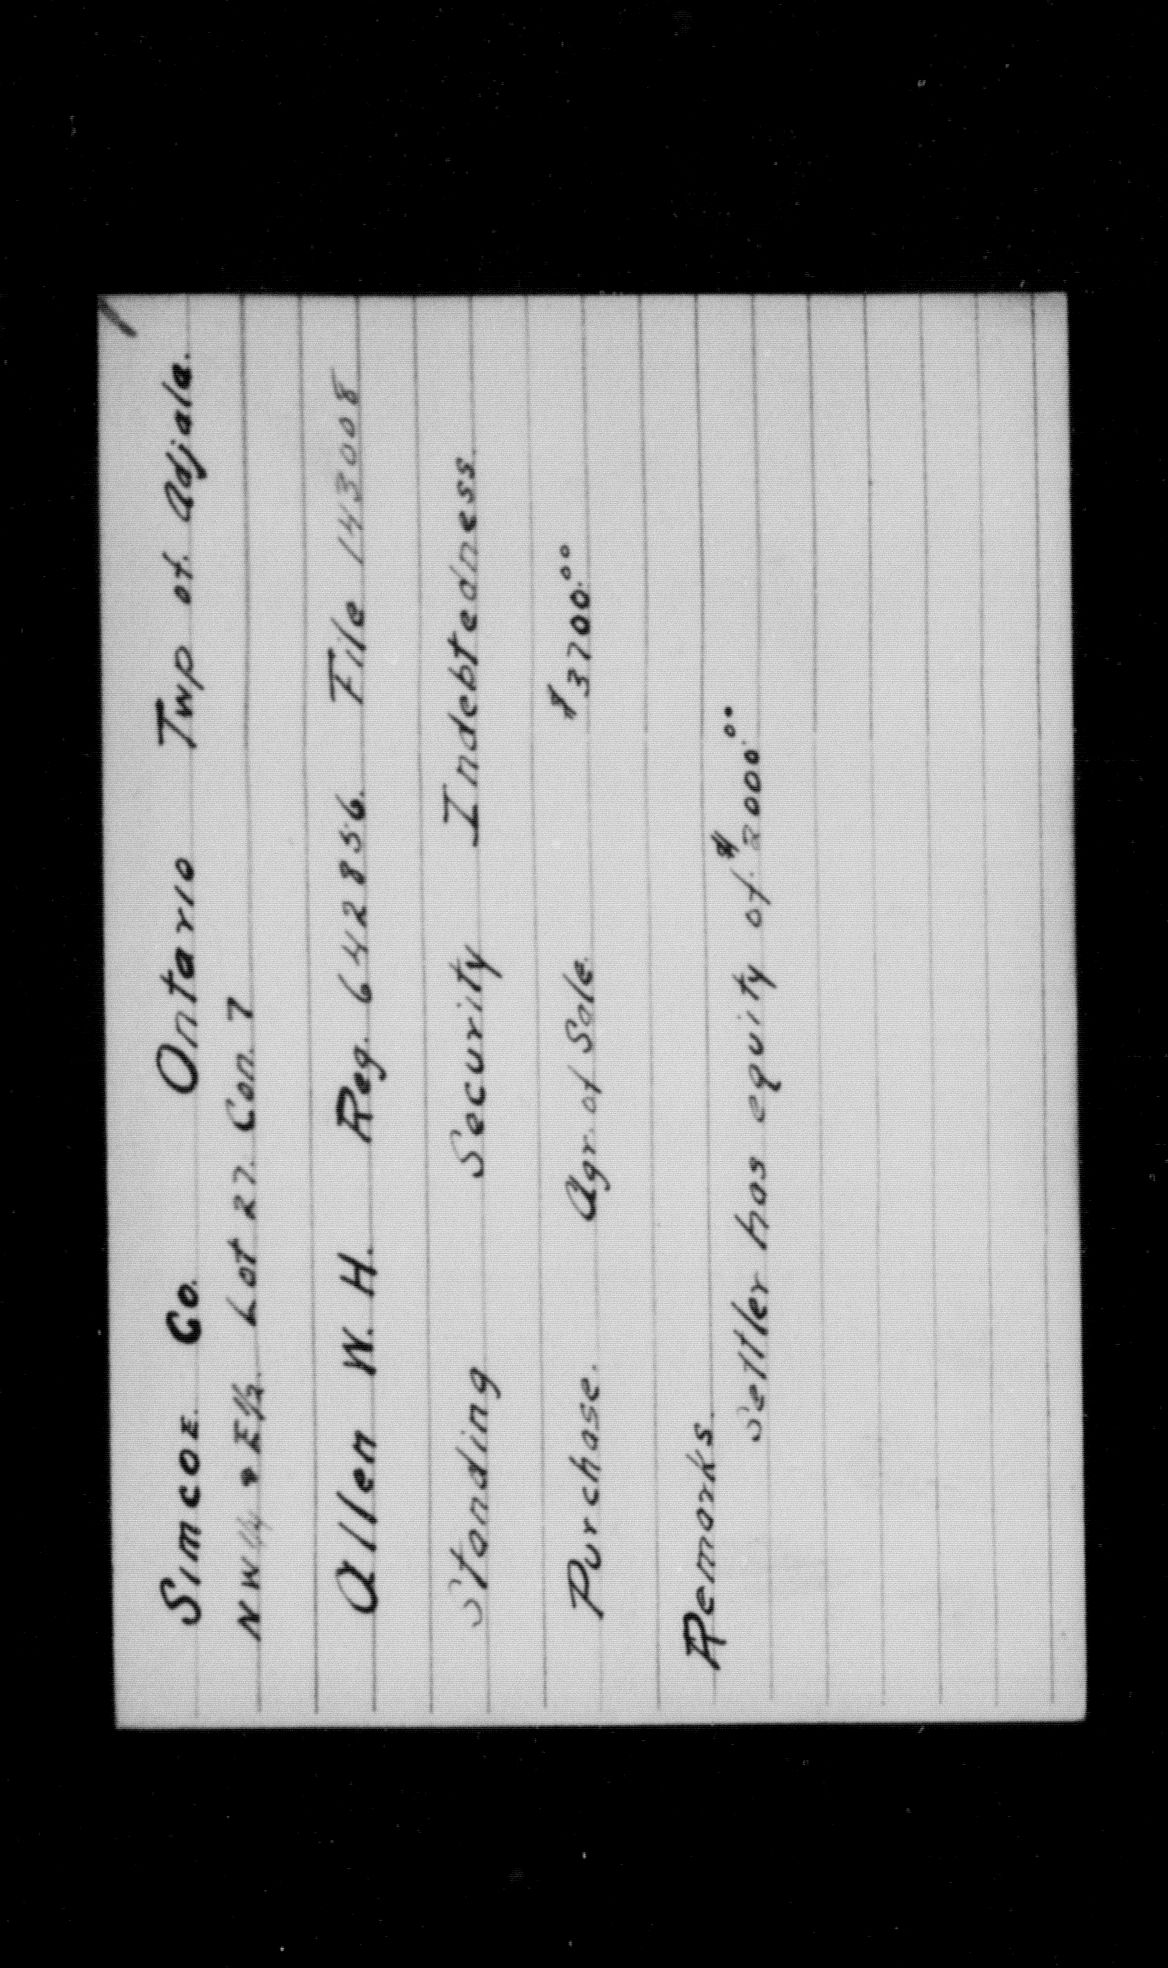 Simcoe Co. Ontario Twp of. Adjala.
NW 1/4 & E 1/2. Lot 27. Con. 7
Allen W. H. Reg. 642856. File 143008
Standing Security Indebtedness
Purchase. Agr. of Sale. $3700.00
Remarks.
Settler has equity of $2000.00